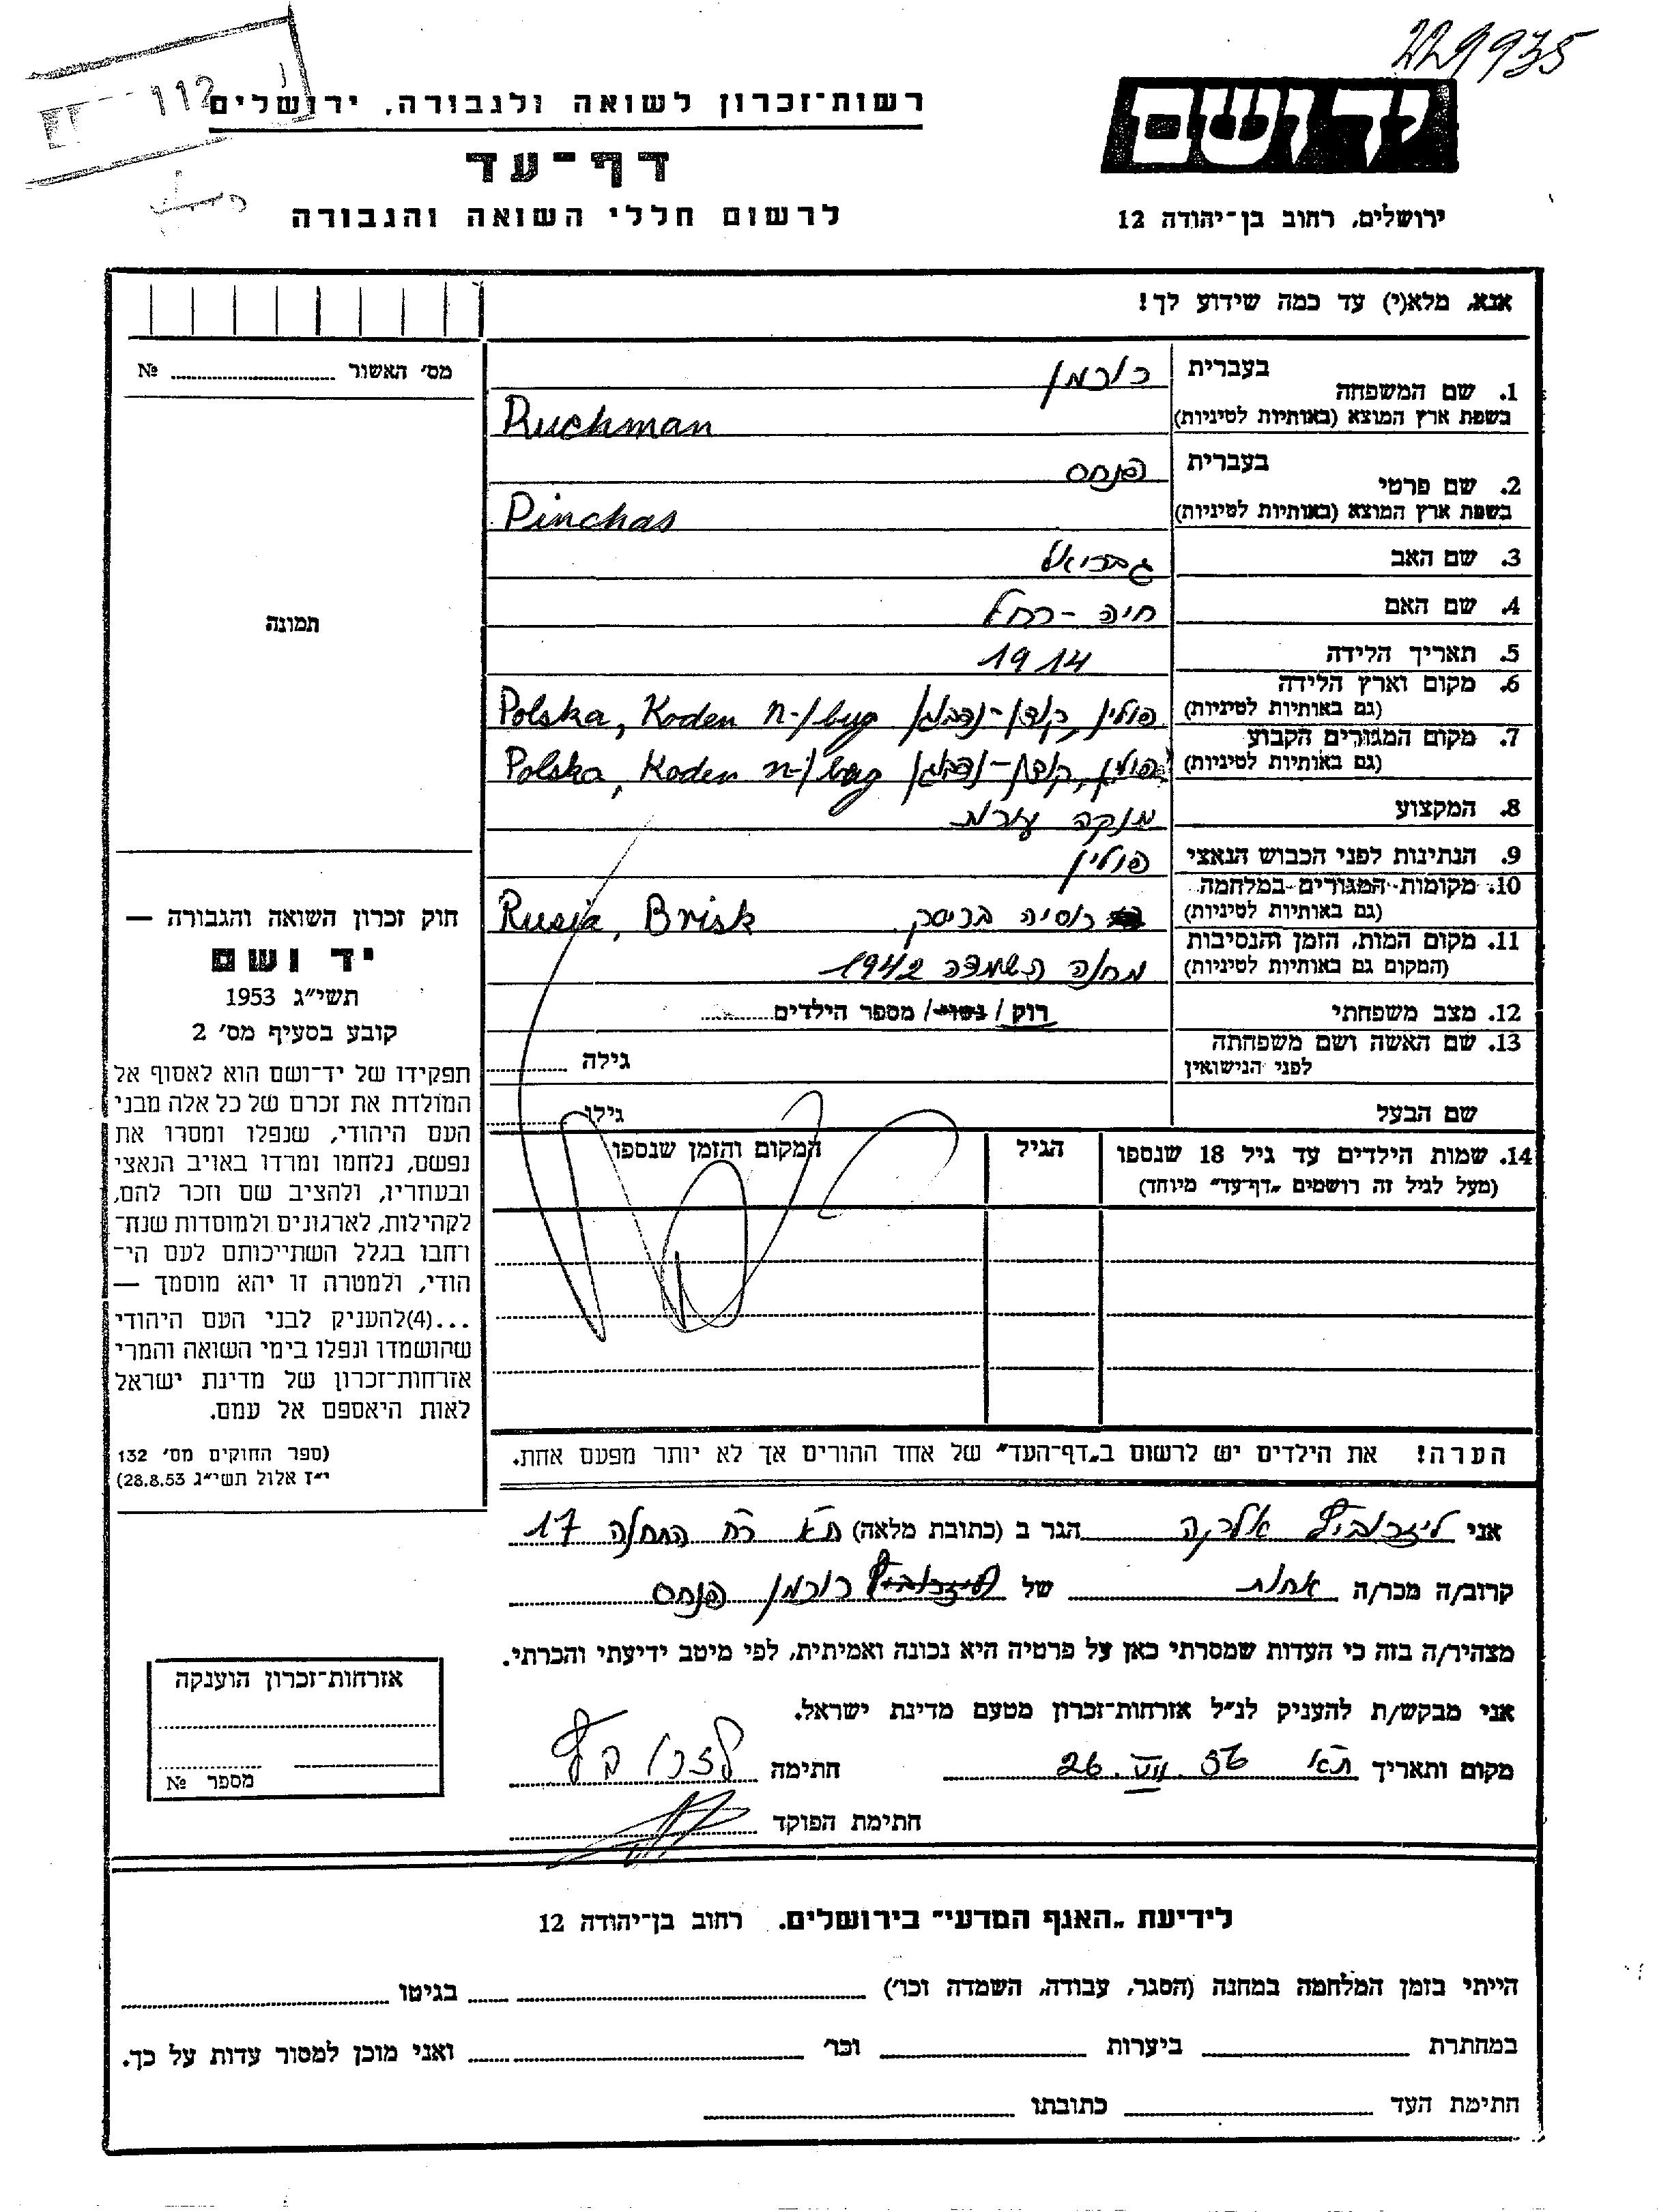 229935
112
רשות־זכרון לשואה ולגבורה, ירושלים
דף־עד
לרשום חללי השואה והגבורה
יד ושם
ירושלים, רחוב בן־יהודה 12
אנא, מלא(י) עד כמה שידוע לך!
מס' האשור № 
1. שם המשפחה בעברית רוכמן
בשפת ארץ המוצא (באותיות לטיניות) Ruchman
2. שם פרטי בעברית פנחס
בשפת ארץ המוצא (באותיות לטיניות) Pinchas
3. שם האב גבריאל
4. שם האם חיה - רחל
5. תאריך הלידה 1914
6. מקום וארץ הלידה
(גם באותיות לטיניות) פולין, קודן - נדבוגן Polska, Koden n-/bug
7. מקום המגורים הקבוע
(גם באותיות לטיניות) פולין, קודן - נדבוגן Polska, Koden n-/bug
8. המקצוע
9. הנתינות לפני הכבוש הנאצי פולין
10. מקומות המגורים במלחמה
(גם באותיות לטיניות) רוסיה בריסק. Rusia, Brisk
11. מקום המות, הזמן והנסיבות
(המקום גם באותיות לטיניות) מחנה השמדה 1942
12. מצב משפחתי רוק / נשוי / מספר הילדים
13. שם האשה ושם משפחתה
לפני הנישואין גילה
שם הבעל גילו
14. שמות הילדים עד גיל 18 שנספו הגיל המקום והזמן שנספו
(מעל לגיל זה רושמים „דף־עד” מיוחד)
הערה! את הילדים יש לרשום ב„דף־העד” של אחד ההורים אך לא יותר מפעם אחת.
תמונה
חוק זכרון השואה והגבורה —
יד ושם
תשי״ג 1953
קובע בסעיף מס' 2
תפקידו של יד־ושם הוא לאסוף אל
המולדת את זכרם של כל אלה מבני
העם היהודי, שנפלו ומסרו את
נפשם, נלחמו ומרדו באויב הנאצי
ובעוזריו, ולהציב שם וזכר להם,
לקהילות, לארגונים ולמוסדות שנח־
רחבו בגלל השתייכותם לעם הי־
הודי, ולמטרה זו יהא מוסמך —
...(4)להעניק לבני העם היהודי
שהושמדו ונפלו בימי השואה והמרי
אזרחות־זכרון של מדינת ישראל
לאות היאספם אל עמם.
(ספר החוקים מס' 132
י״ז אלול תשי״ג 28.8.53)
אני הגר ב (כתובת מלאה) ת״א רח 17
קרוב/ה מכר/ה אחות של רוכמן פנחס
מצהיר/ה בזה כי העדות שמסרתי כאן על פרטיה היא נכונה ואמיתית, לפי מיטב ידיעתי והכרתי.
אני מבקש/ת להעניק לנ״ל אזרחות־זכרון מטעם מדינת ישראל.
מקום ותאריך ת״א 26. VII. 56 חתימה
חתימת הפוקד
אזרחות־זכרון הוענקה
מספר №
לידיעת „האגף המדעי” בירושלים. רחוב בן־יהודה 12
הייתי בזמן המלחמה במחנה (הסגר, עבודה, השמדה וכו') בגיטו
במחתרת ביערות וכו' ואני מוכן למסור עדות על כך.
חתימת העד כתובתו